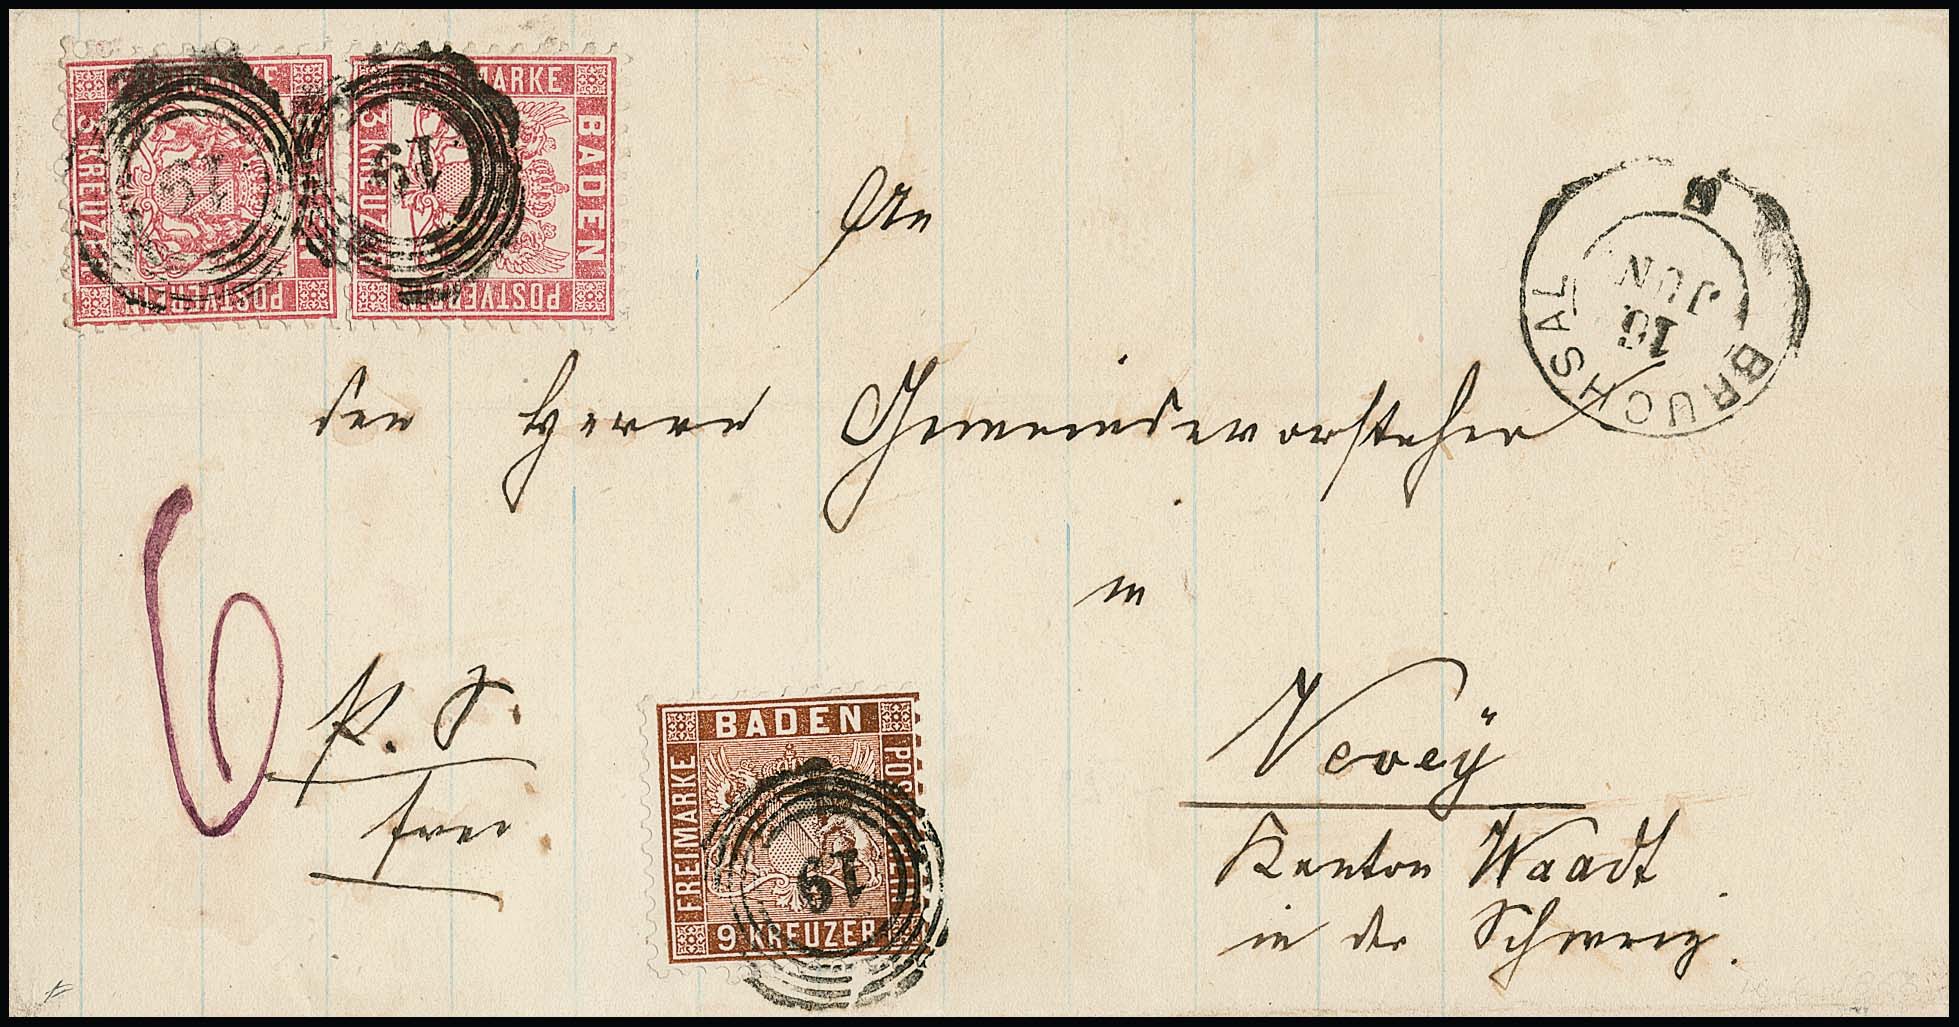 FREIMARKE
3 KREUZER
POSTVEREIN
FREIMARKE
BADEN
3 KREUZER
POSTVEREIN
19
19
BRUCHSAL
16
JUN
An
den Herrn Gemeindevorsteher
in
Vevey
Kanton Waadt
in der Schweiz.
6
P. S.
frei
BADEN
FREIMARKE
POSTVEREIN
9 KREUZER
19